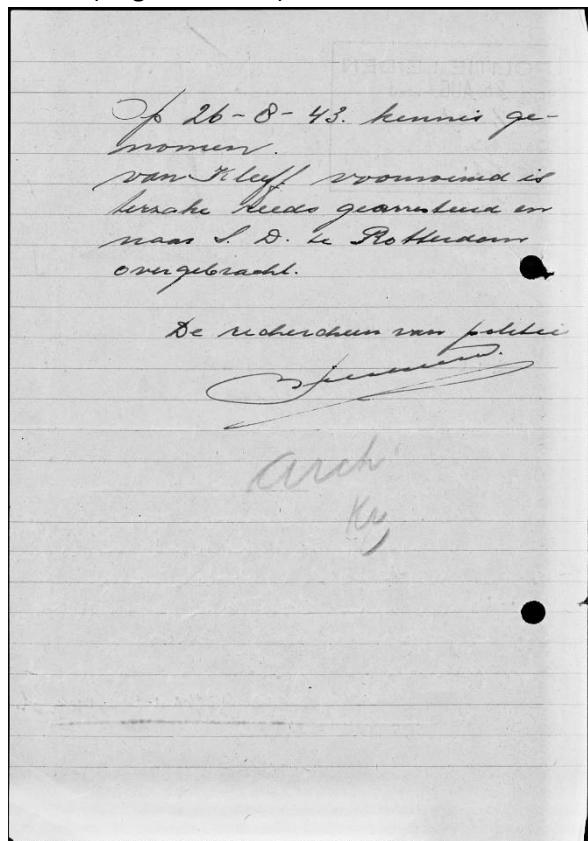 Op 26-8-43. kennis ge-
nomen.
van Kleeff voornoemd is
terzake reeds gearresteerd en
naar S. D. te Rotterdam
overgebracht.
De rechercheur van politie
Arch.